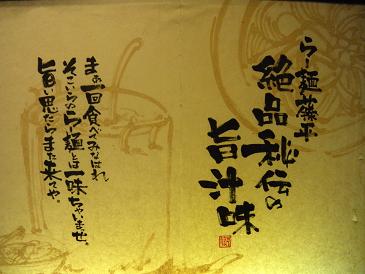 らー麺藤平
絶品秘伝の
旨汁味
まぁ一回食べてみなはれ。
そこいらのらー麺とは一味ちゃいまっせ。
旨い思たらまた来てや。